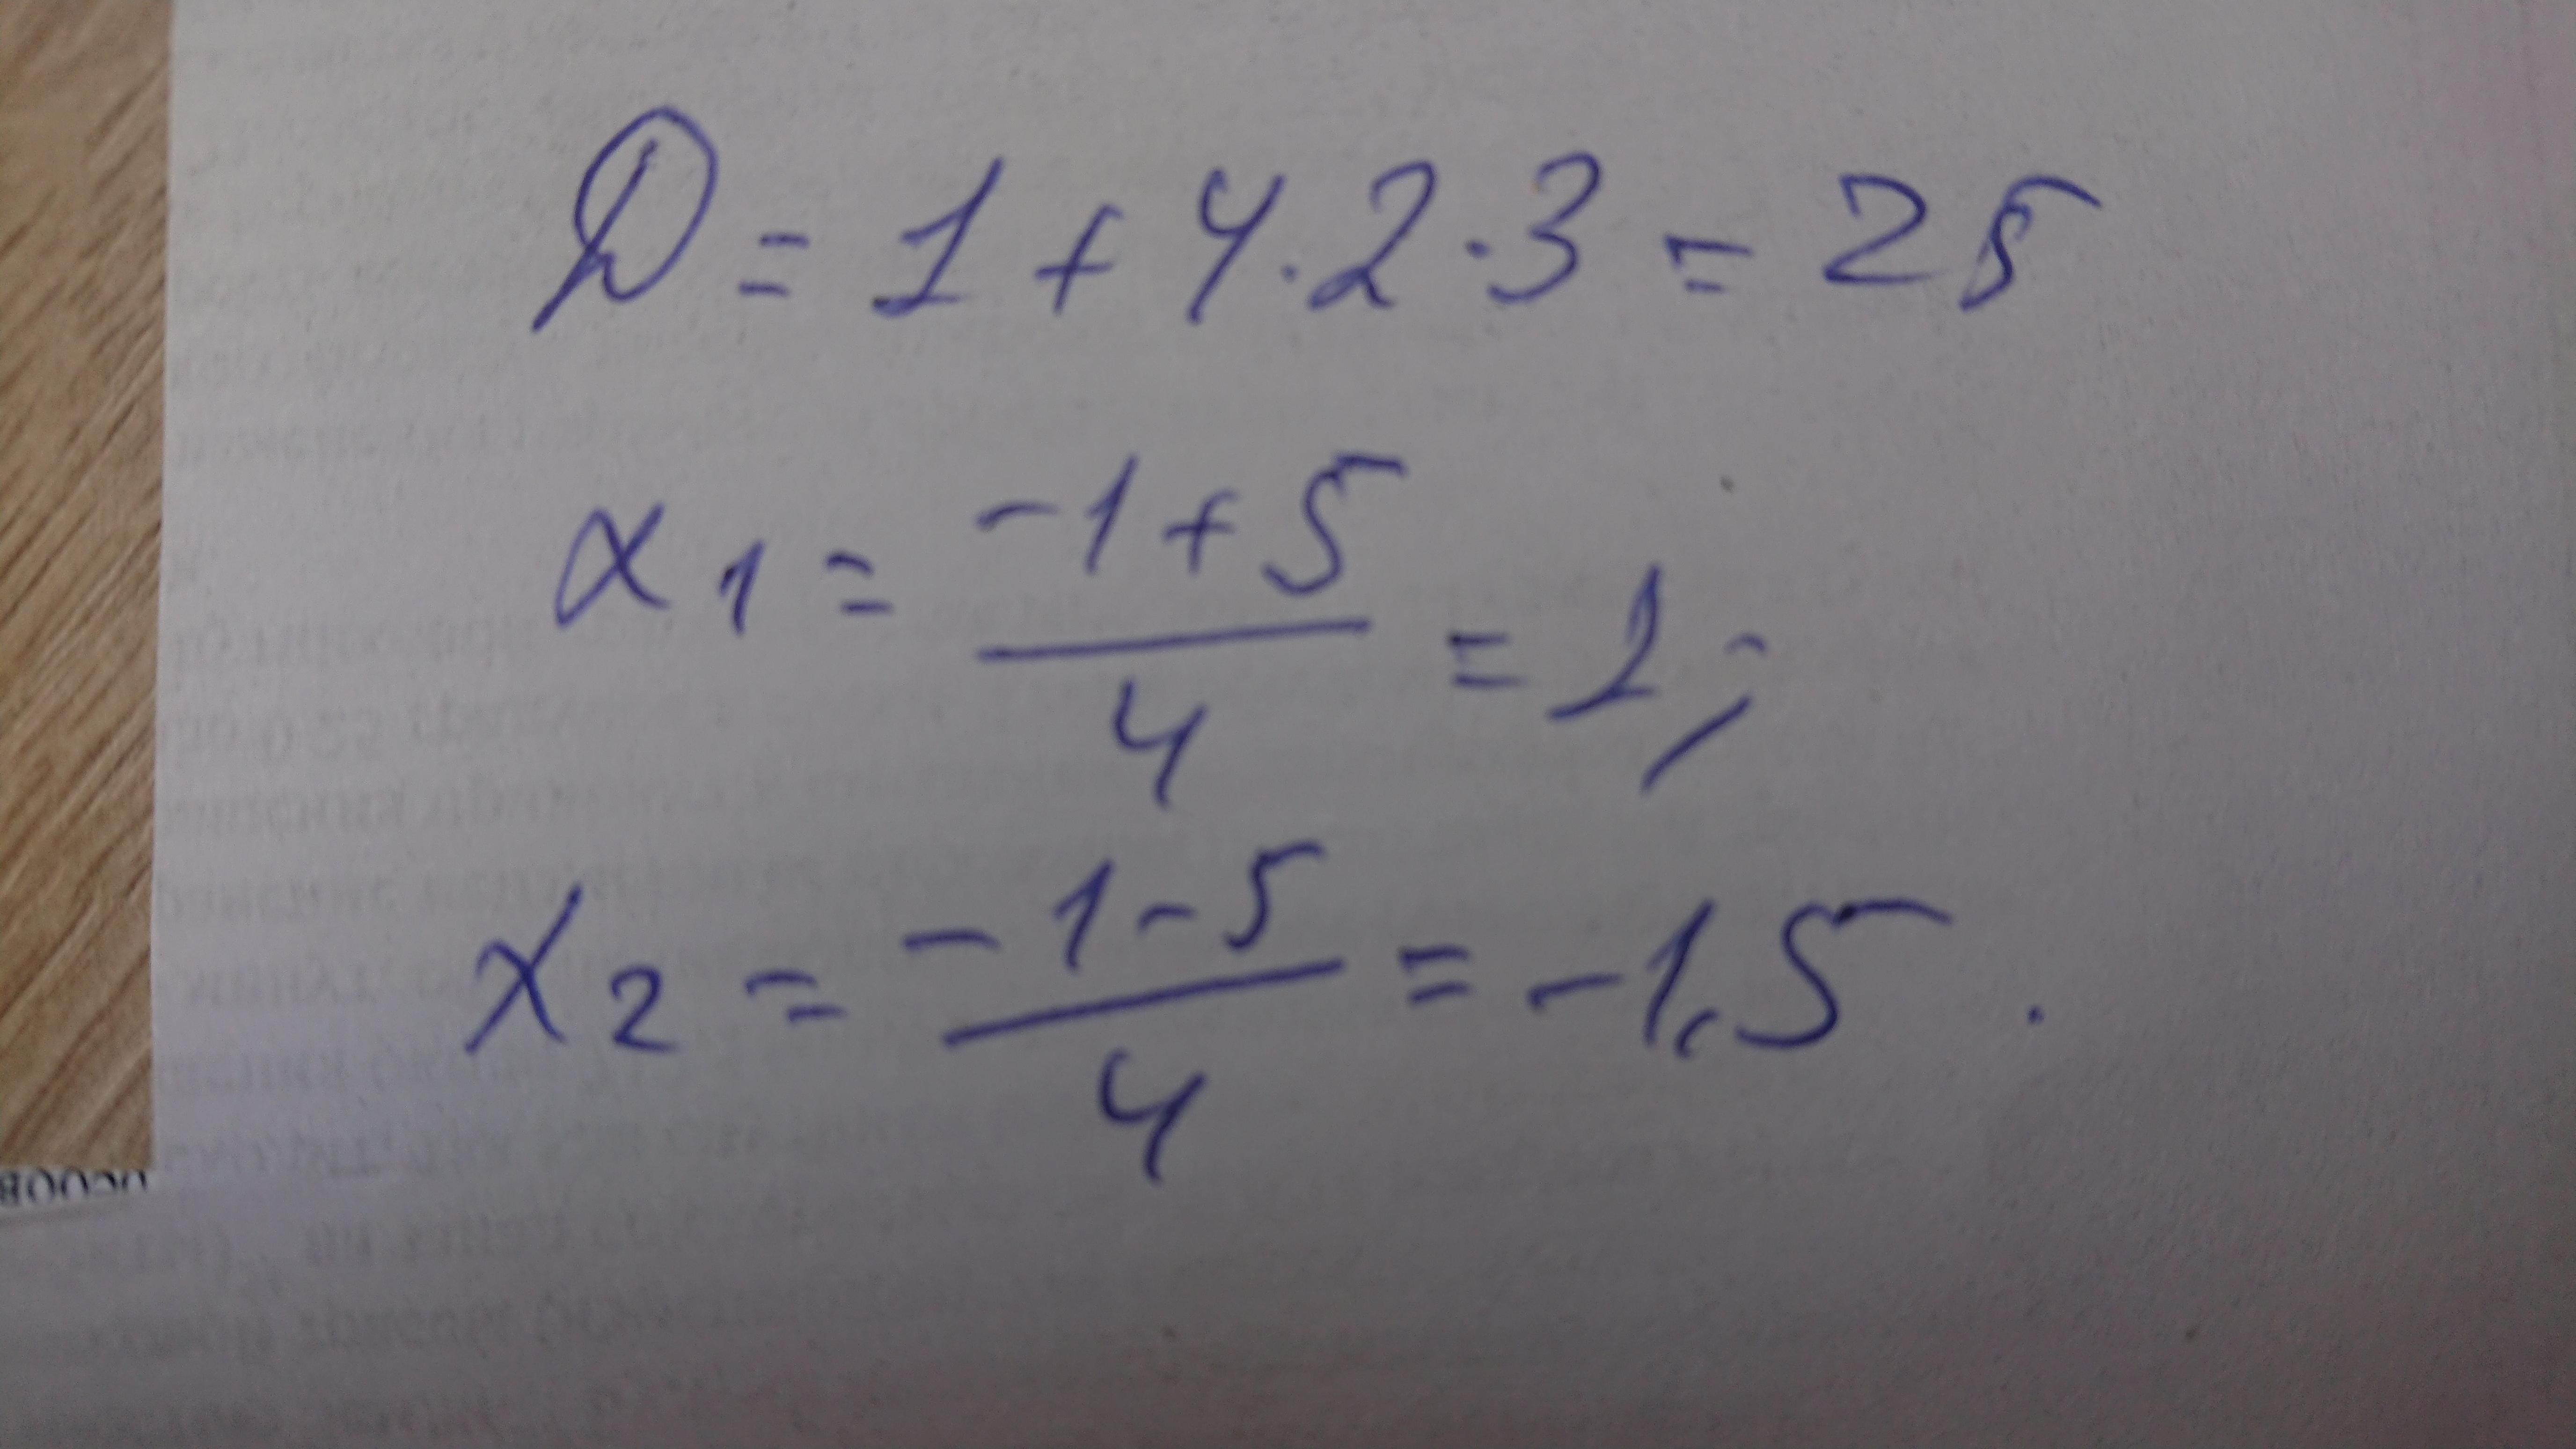 D = 1 + 4·2·3 = 25
x₁ = (-1+5)/4 = 1;
x₂ = (-1-5)/4 = -1,5.